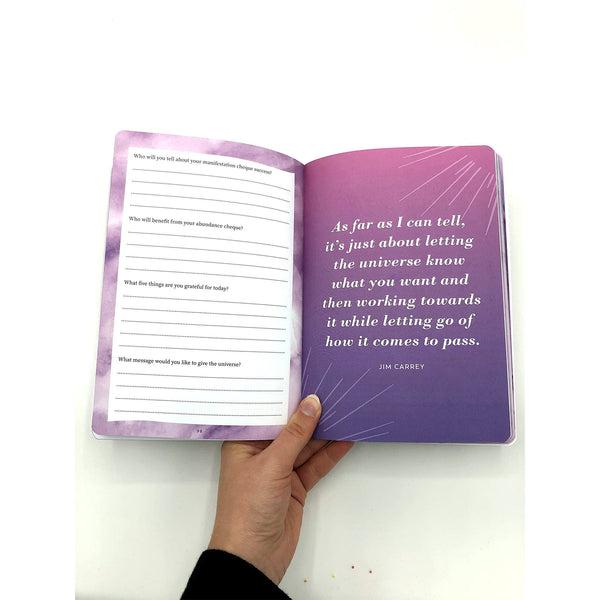 Who will you tell about your manifestation cheque success?
Who will benefit from your abundance cheque?
What five things are you grateful for today?
What message would you like to give the universe?
As far as I can tell,
it's just about letting
the universe know
what you want and
then working towards
it while letting go of
how it comes to pass.
JIM CARREY